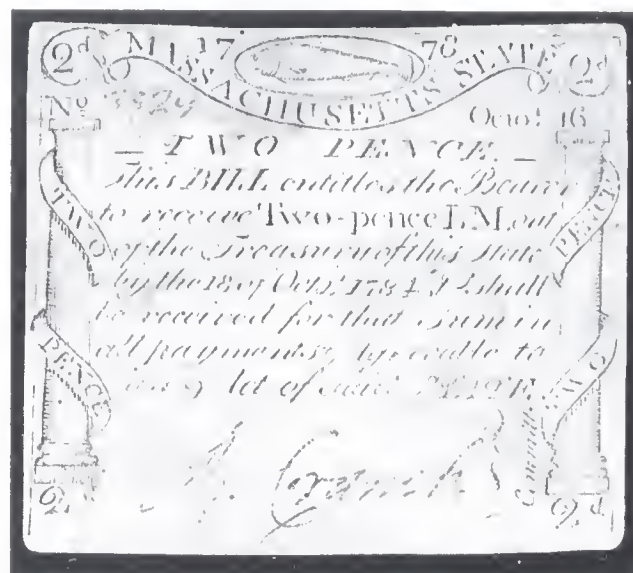 2d 17 78 2d
MASSACHUSETTS STATE
No Octo! 16
TWO PENCE.
This BILL entitles the Bearer
to receive Two-pence L.M. out
of the Treasury of this State
by the 18 of Octr. 1784 & shall
be received for that Sum in
all payments, agreeable to
TWO
PENCE
PENCE
TWO
Committee
2d